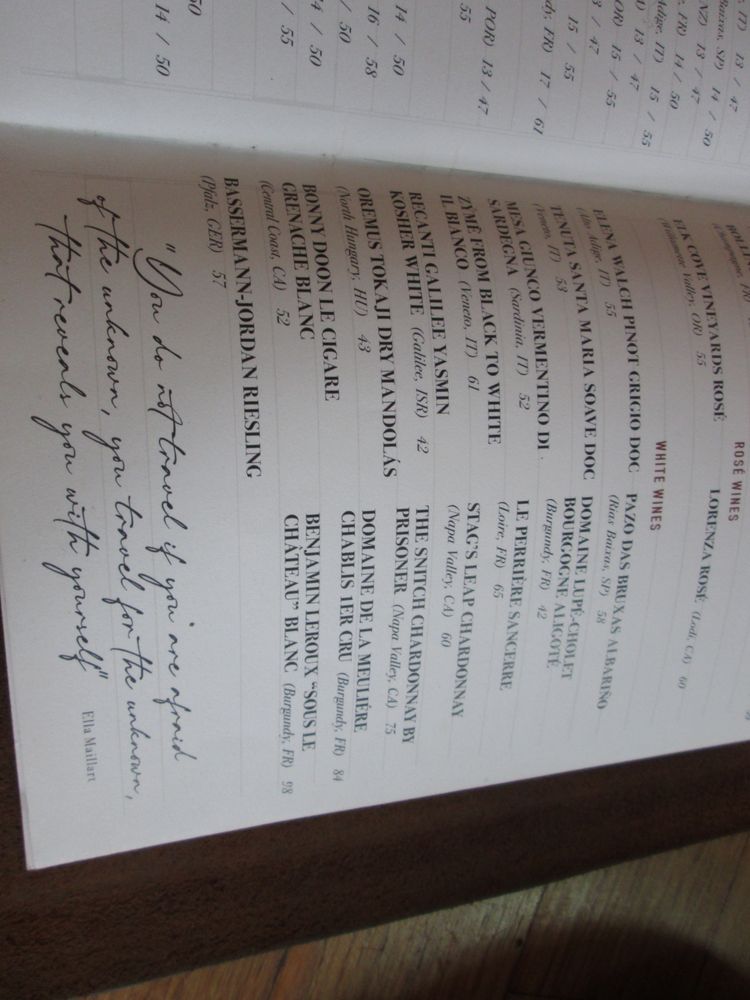 IT) 13 / 47
Baixas, SP) 14 / 50
NZ) 13 / 47
FR) 14 / 50
Adige, IT) 15 / 55
13 / 47
OR) 15 / 55
/ 47
15 / 55
FR) 17 / 61
POR) 13 / 47
55
14 / 50
16 / 58
/ 50
/ 50
/ 55
50
14 / 50
ROSÉ WINES
ELK COVE VINEYARDS ROSÉ
(Willamette Valley, OR) 55
LORENZA ROSÉ (Lodi, CA) 60
WHITE WINES
ELENA WALCH PINOT GRIGIO DOC
(Alto Adige, IT) 55
TENUTA SANTA MARIA SOAVE DOC
(Veneto, IT) 53
MESA GIUNCO VERMENTINO DI
SARDEGNA (Sardinia, IT) 52
ZYMĒ FROM BLACK TO WHITE
IL BIANCO (Veneto, IT) 61
RECANTI GALILEE YASMIN
KOSHER WHITE (Galilee, ISR) 42
OREMUS TOKAJI DRY MANDOLÁS
(North Hungary, HU) 43
BONNY DOON LE CIGARE
GRENACHE BLANC
(Central Coast, CA) 52
BASSERMANN-JORDAN RIESLING
(Pfalz, GER) 57
PAZO DAS BRUXAS ALBARIÑO
(Rias Baixas, SP) 58
DOMAINE LUPÉ-CHOLET
BOURGOGNE ALIGOTÉ
(Burgundy, FR) 42
LE PERRIÈRE SANCERRE
(Loire, FR) 65
STAG'S LEAP CHARDONNAY
(Napa Valley, CA) 60
THE SNITCH CHARDONNAY BY
PRISONER (Napa Valley, CA) 75
DOMAINE DE LA MEULIÈRE
CHABLIS 1ER CRU (Burgundy, FR) 84
BENJAMIN LEROUX “SOUS LE
CHÂTEAU” BLANC (Burgundy, FR) 98
"You do not travel if you are afraid
of the unknown, you travel for the unknown,
that reveals you with yourself"
Ella Maillart